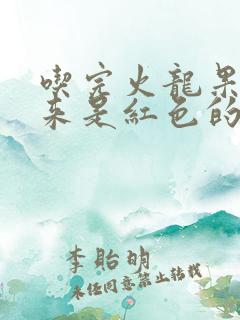 喫完火龍果
來是紅色的
李貽明
未任同意禁止轉載